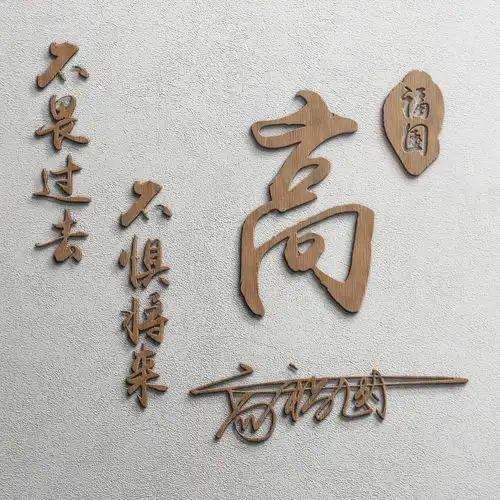 不畏过去
不惧将来
高
福国